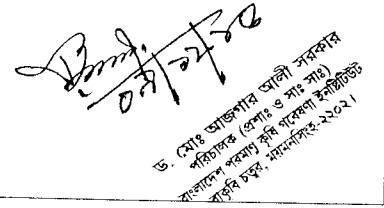 ড. মোঃ আজগার আলী সরকার
পরিচালক (প্রশাঃ ও সাঃ সাঃ)
বাংলাদেশ পরমাণু কৃষি গবেষণা ইনষ্টিটিউট
বাকৃবি চত্বর, ময়মনসিংহ-২২০২।